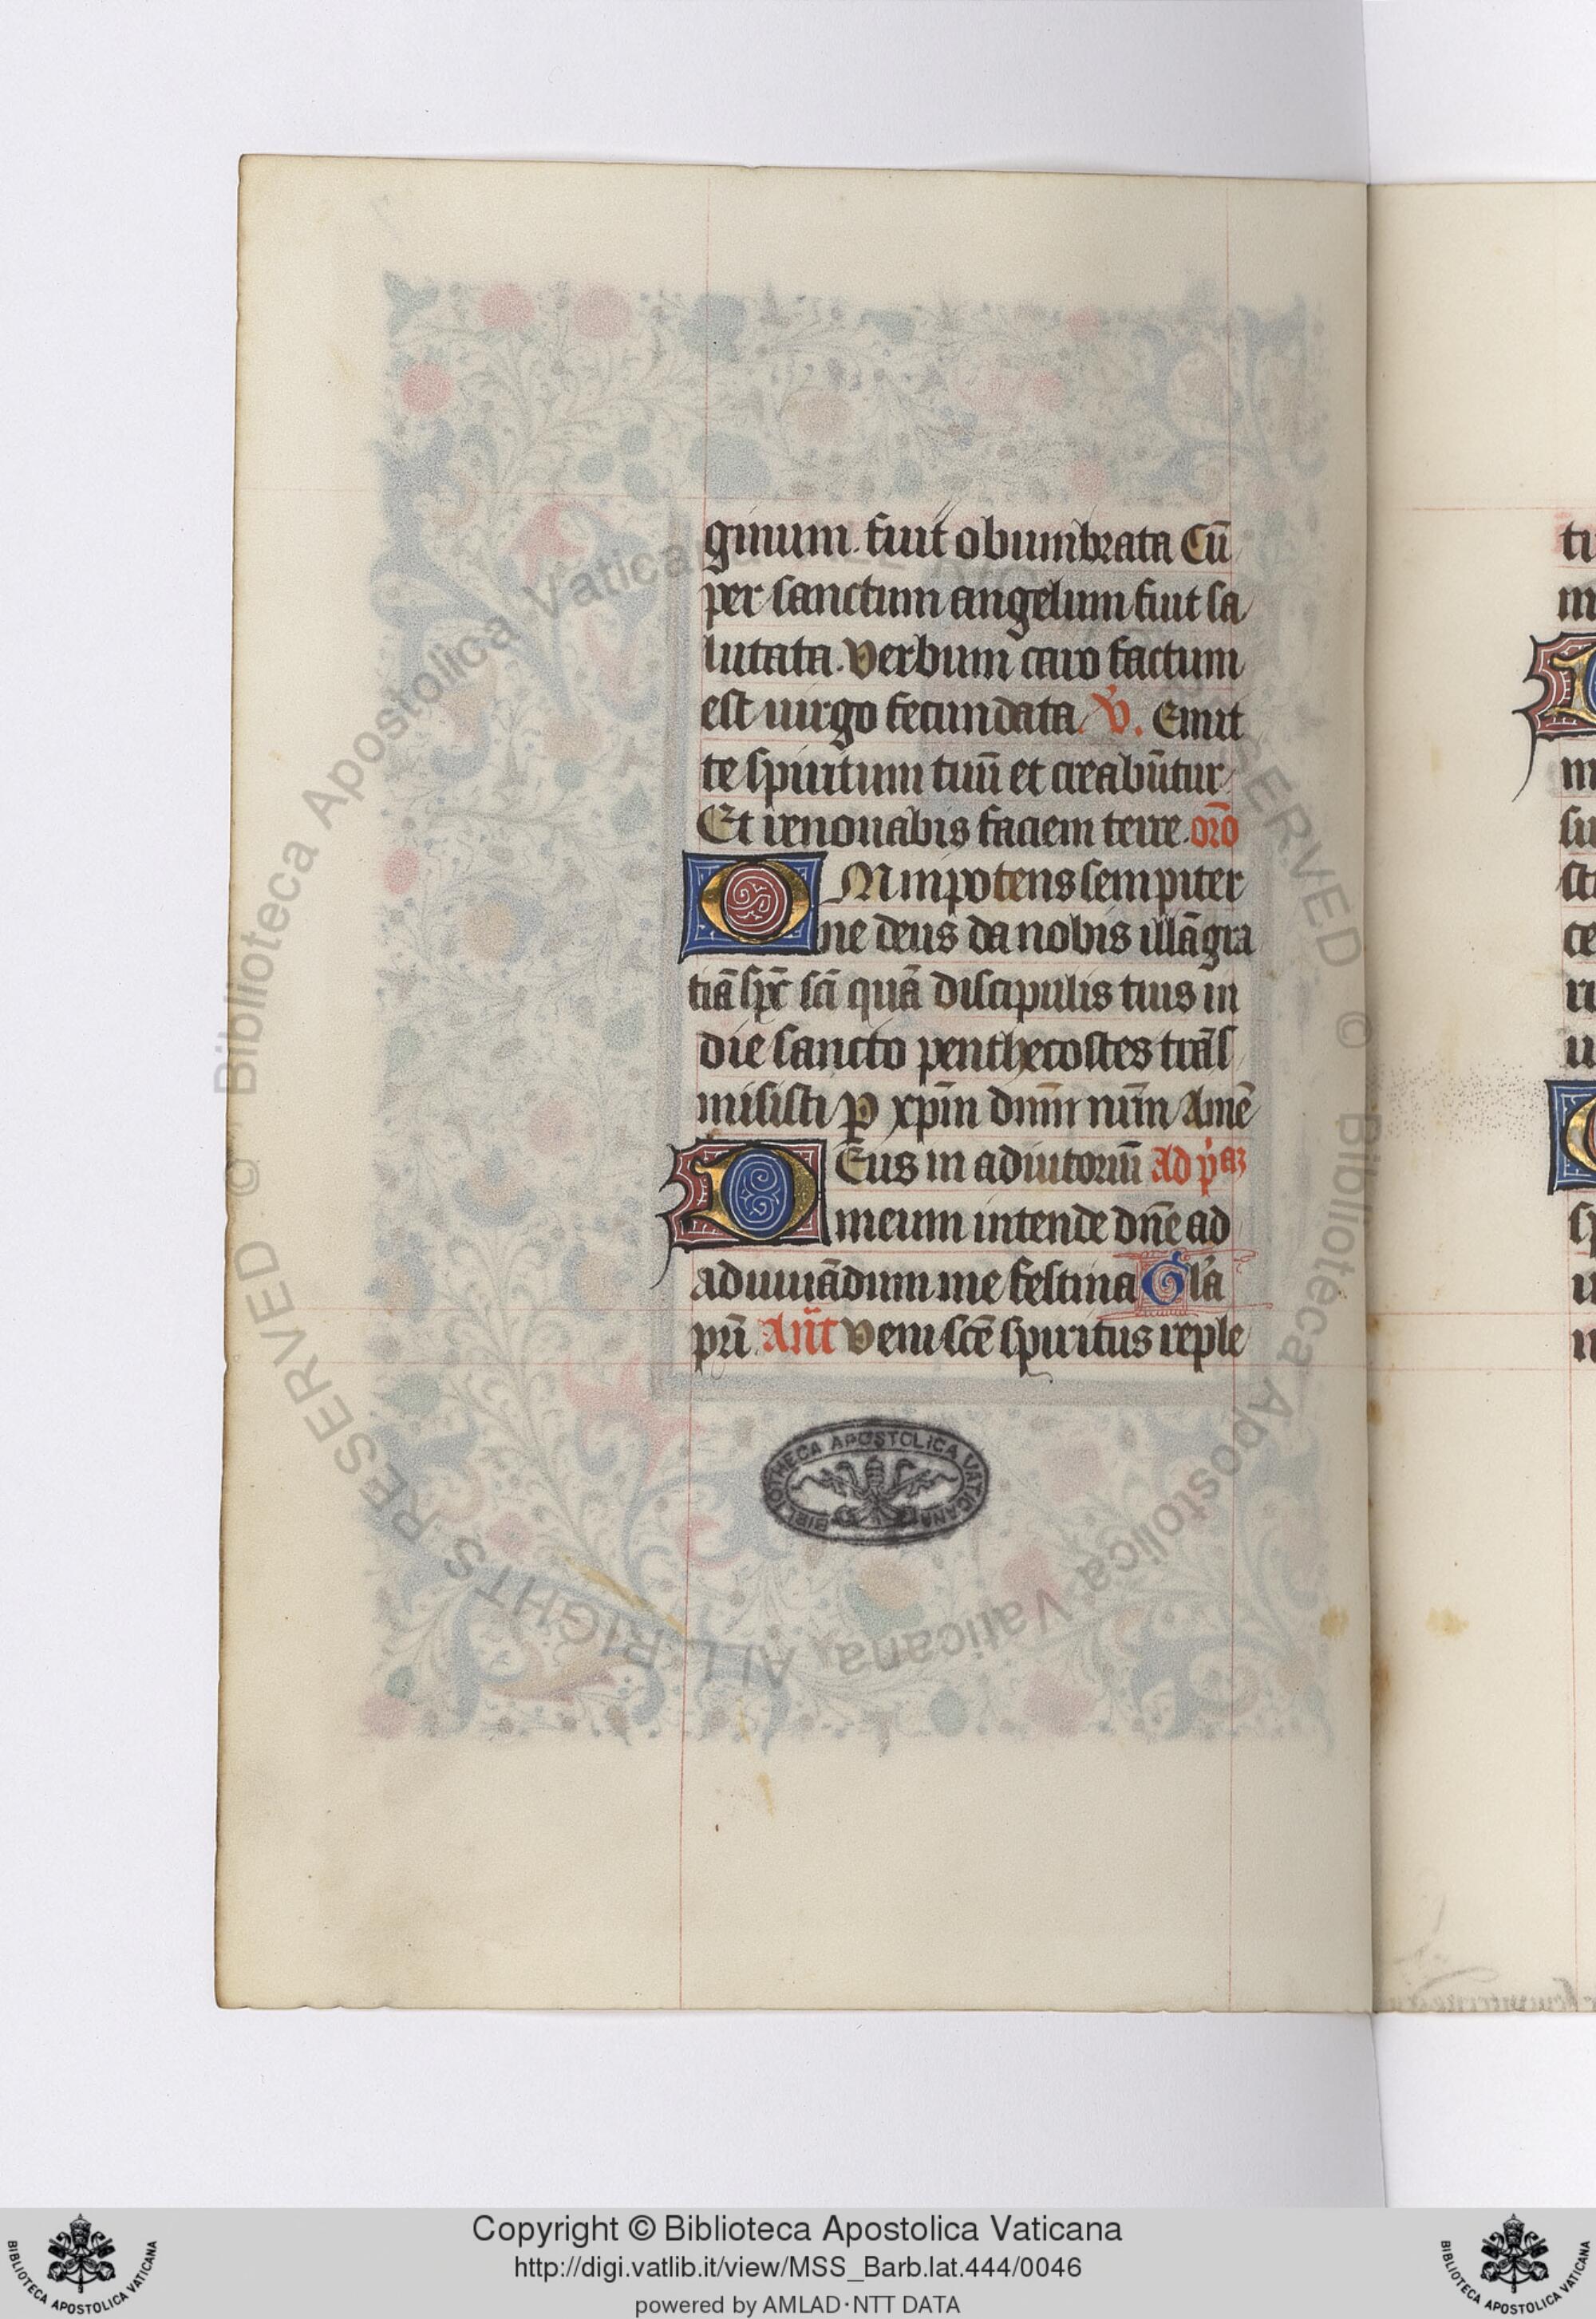 ginum. fuit obumbrata Cū
per sanctum angelum fuit sa
lutata. Verbum caro factum
est uirgo fecundata. V̄. Emit
te spiritum tuū et creabūtur
Et renouabis faciem terre. orō
OMnipotens sempiter
ne deus da nobis illā gra
tiā spc̄ sc̄i quā discipulis tuis in
die sancto penthecostes trās
misisti ꝑ xp̄m dn̄m nr̄m Amē
DEus in adiutoriū Ad pͥaꝫ
meum intende dn̄e ad
adiuuādum me festina Gl̄a
pr̄i. Añt Veni sc̄e spiritus reple
BIBLIOTHECA APOSTOLICA VATICANA
Biblioteca Apostolica Vaticana
ALL RIGHTS RESERVED ©
Copyright © Biblioteca Apostolica Vaticana
http://digi.vatlib.it/view/MSS_Barb.lat.444/0046
powered by AMLAD·NTT DATA
BIBLIOTECA APOSTOLICA VATICANA
BIBLIOTECA APOSTOLICA VATICANA